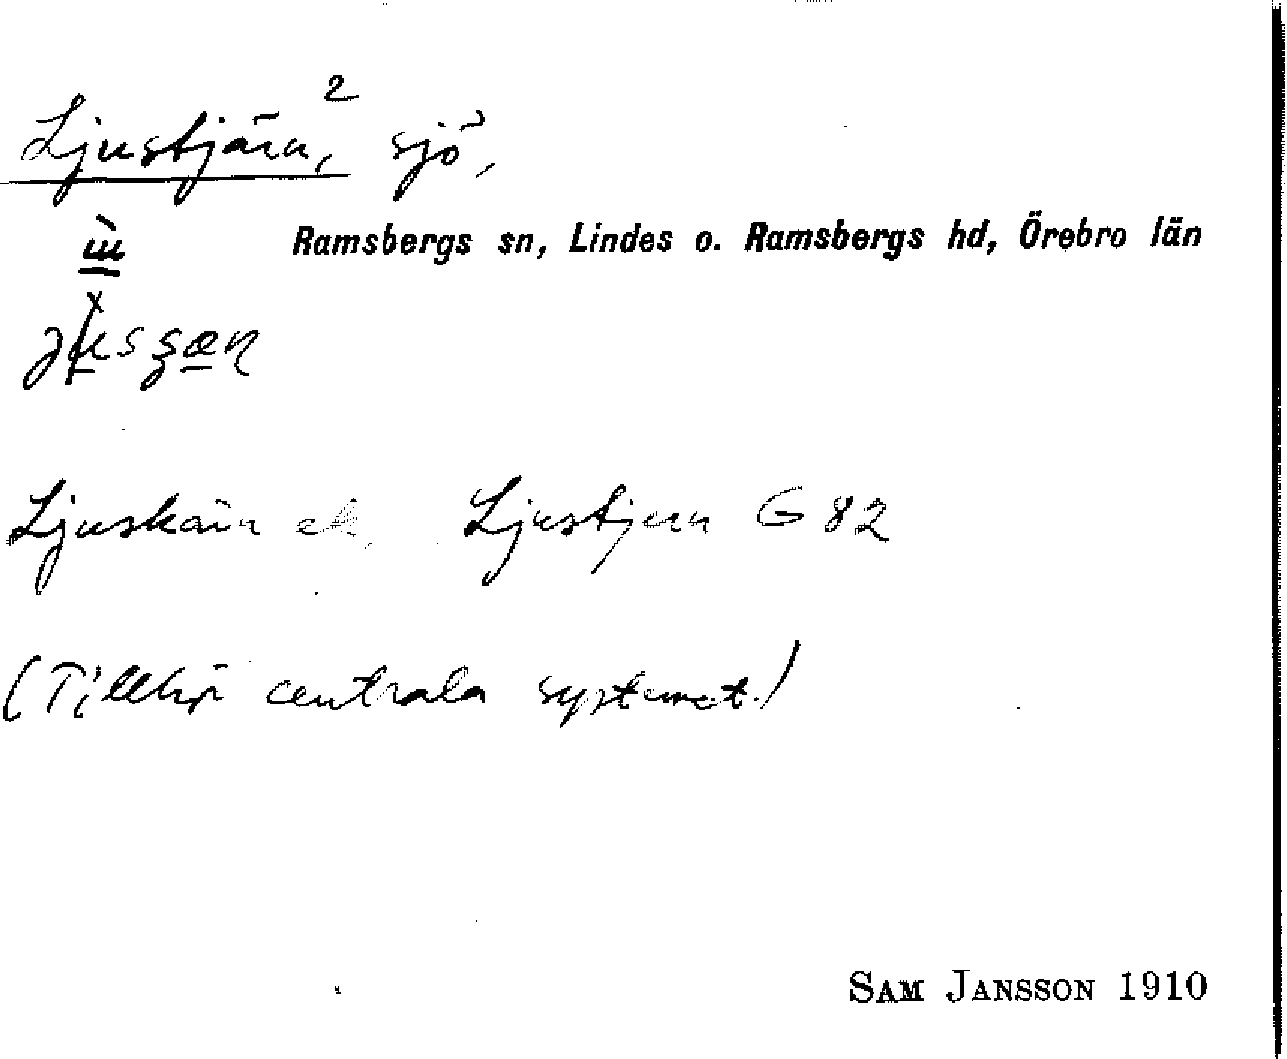 Ljustjärn,² sjö,
Ramsbergs sn, Lindes o. Ramsbergs hd, Örebro län
Ljuskärn el. Ljustjern G 82
(Tillhör centrala systemet.)
SAM JANSSON 1910